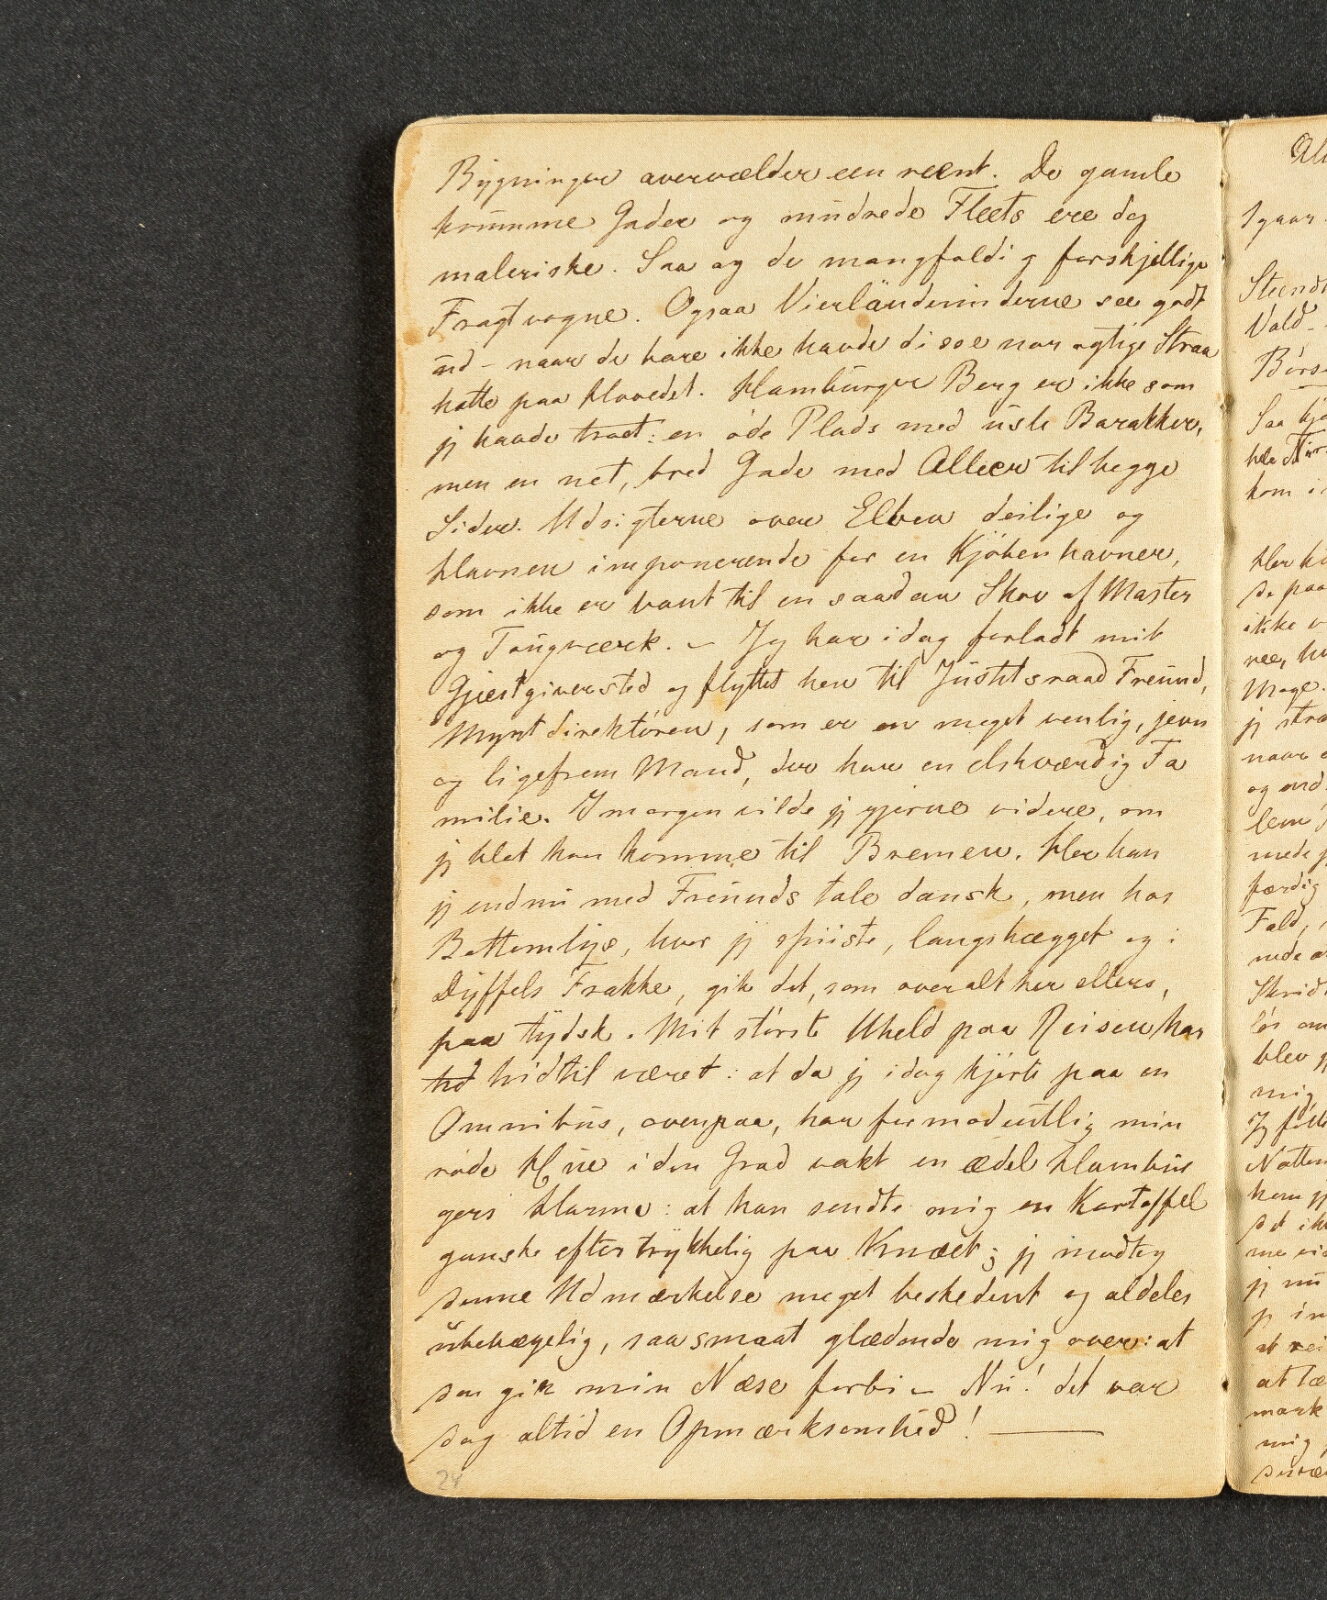 Bygninger overvælder een reent. De gamle
krumme Gader og mudrede Fleets ere dog
maleriske. Saa og de mangfoldig forskjellige
Fragtvogne. Ogsaa Vierländerinderne see godt
ud – naar de bare ikke havde disse nar agtige Straa
hatte paa Hovedet. Hamburger Berg er ikke som
jeg havde troet: en øde Plads med usle Barakker,
men en net, bred Gade med Alleer til begge
Sider. Udsigterne over Elben deilige og
Havnen imponerende for en Kjöbenhavner,
som ikke er vant til en saadan Skov af Master
og Tougværk. – Jeg har idag forladt mit
Gjæstgiversted og flyttet hen til Justitsraad Freund,
Myntdirektören, som er en meget venlig, jevn
og ligefrem Mand, der har en elskværdig Fa
milie. Imorgen vilde jeg gjerne videre, om
jeg blot kan komme til Bremen. Her kan
jeg endnu med Freunds tale dansk, men hos
Bottomlys, hvor jeg spiiste, langskægget og i
Dyffels Frakke, gik det, som overalt her ellers,
paa tydsk. Mit störste Uheld paa Reisen har
hid hidtil været: at da jeg idag kjörte paa en
Omnibus, ovenpaa, har formodentlig min
röde Hue i den Grad vakt en ædel Hambur
gers Harme: at han sendte mig en Kartoffel
ganske eftertrykkelig paa Knæet; jeg modtog
denne Udmærkelse meget beskedent og aldeles
ubevægelig, saasmaat glædende mig over: at
den gik min Næse forbi – Nu! det var
dog altid en Opmærksomhed! ———
24
Igaar
Vald
Börs
kom i
ikke
Mage.
naar
og
færdig
Fald,
blev
mig
Natten
jeg nu
mig